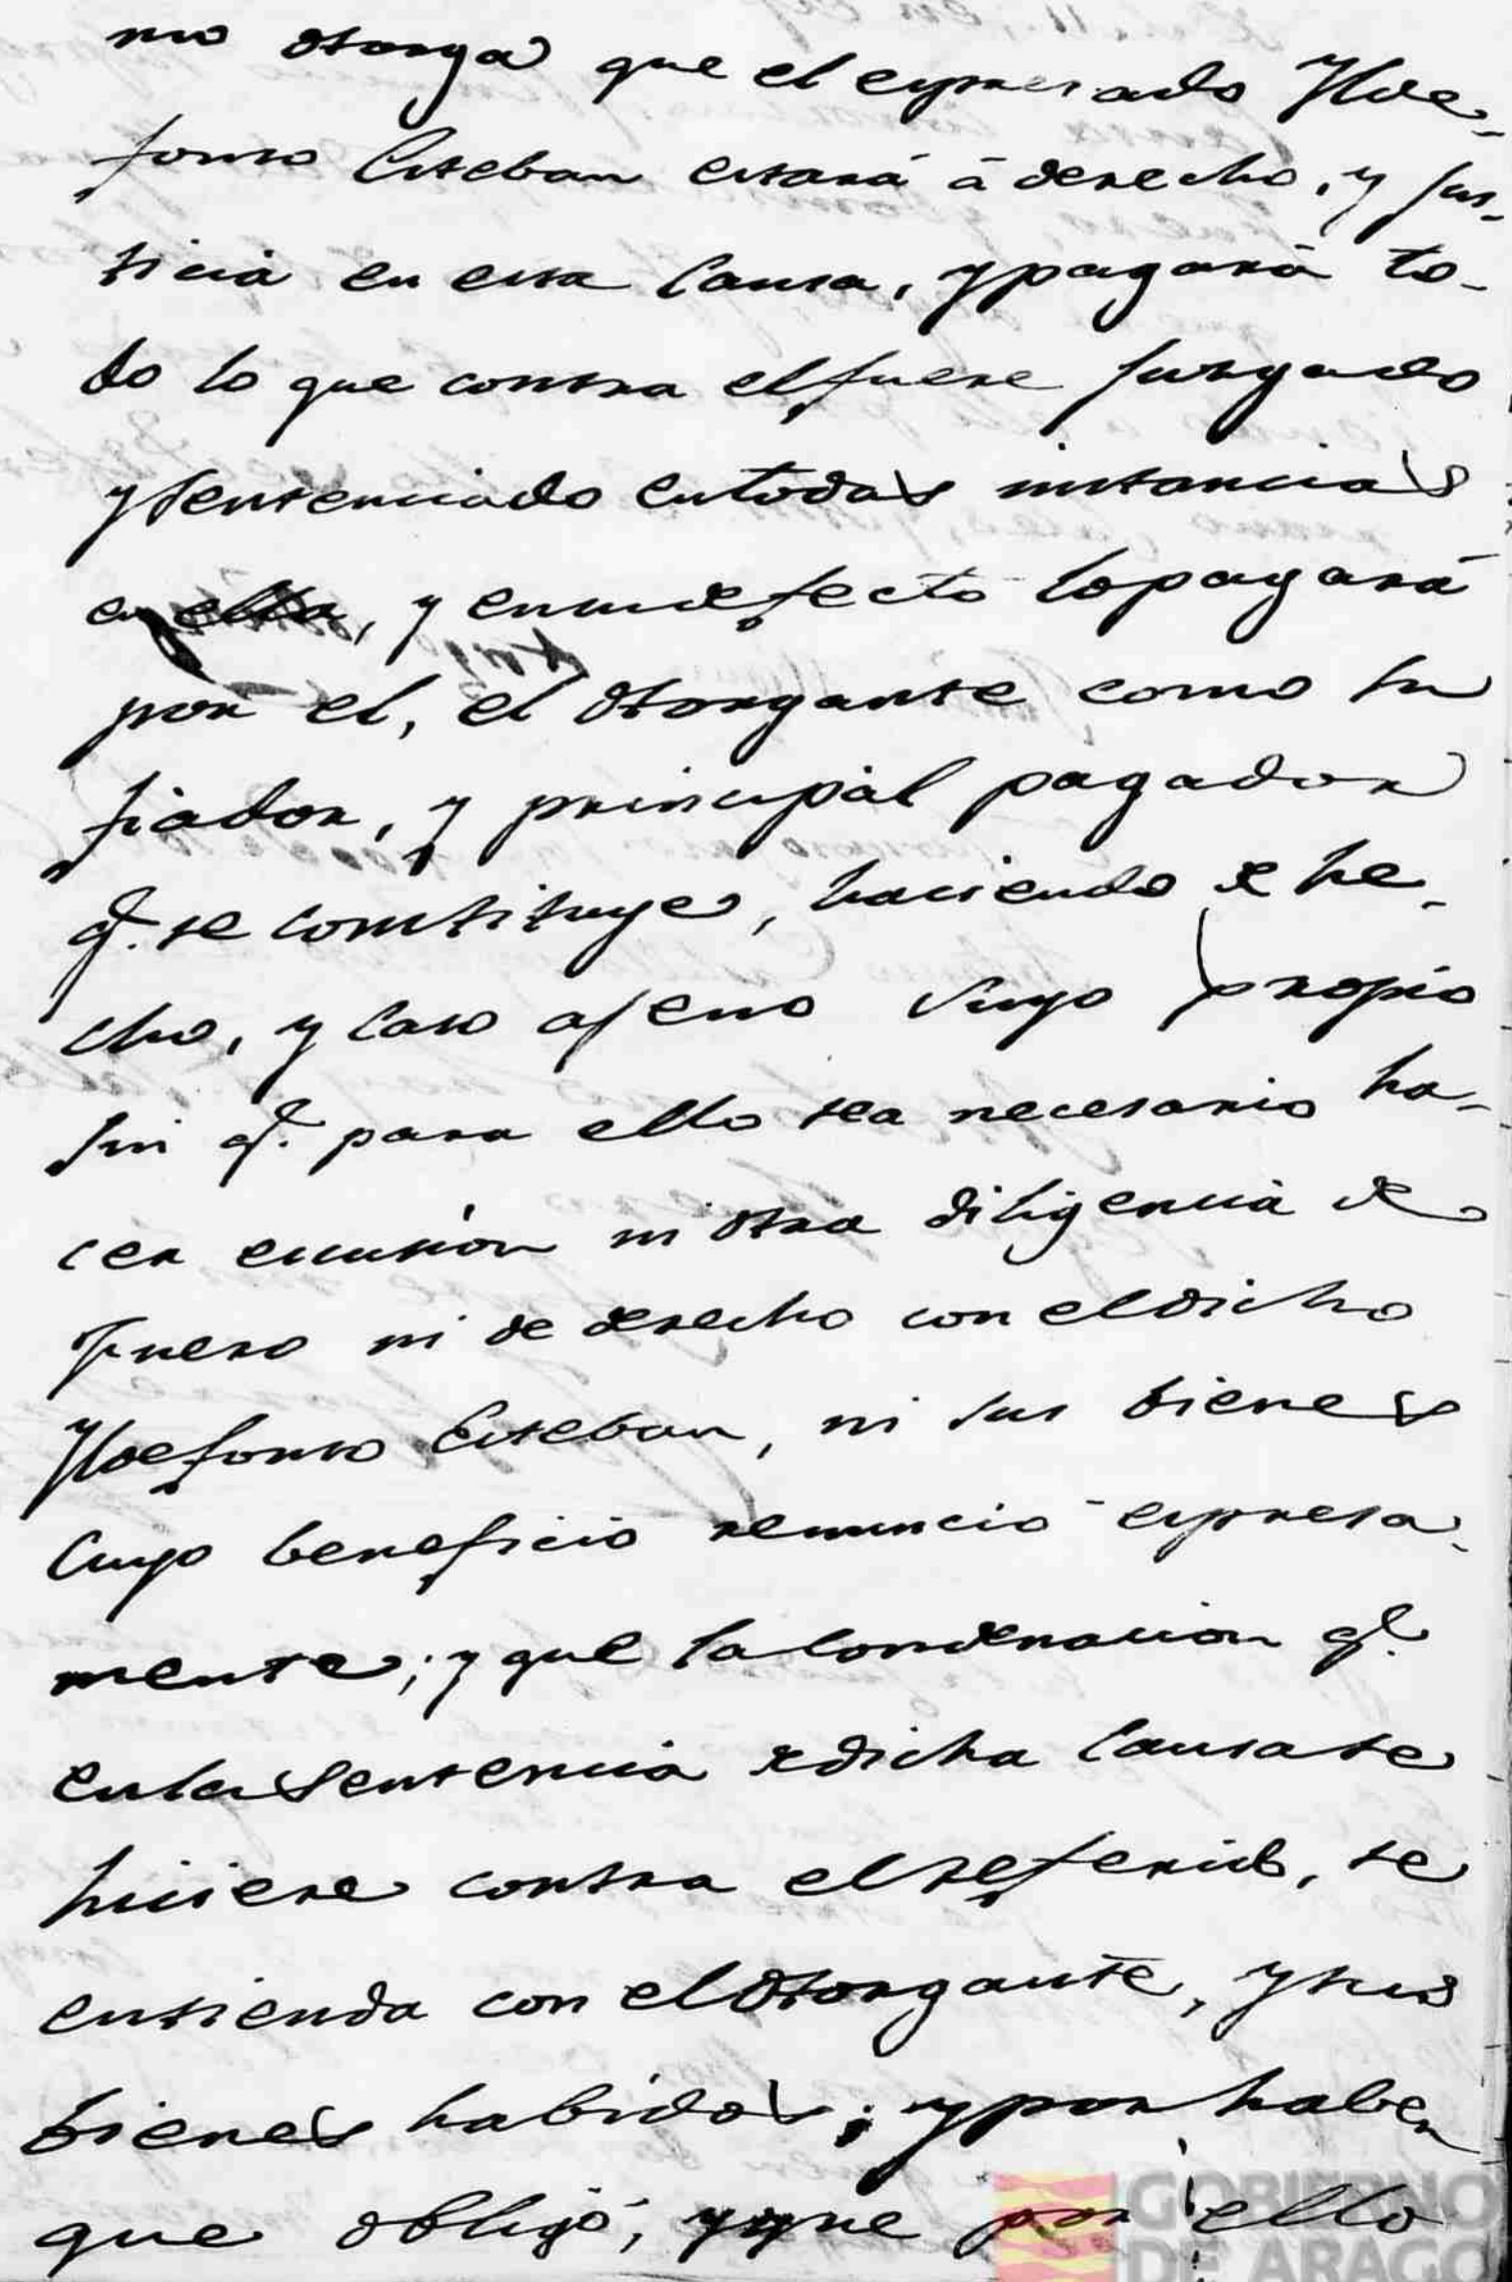 mo otorga que el expresado Ylde-
fonso Esteban estará á derecho, y jus-
ticia en esta Causa, y pagará to-
do lo que contra el fuere jusgado
y sentenciado en todas instancias
en ella, y en su defecto lo pagará
por el, el otorgante como su
fiador, y principal pagador
q.e se constituye, haciendo de he-
cho, y caso ajeno suyo propio
sin q.e para ello sea necesario ha-
cer escusión ni otra diligencia de
fuero ni de derecho con el dicho
Yldefonso Esteban, ni sus bienes
Cuyo beneficio renuncio expresa-
mente; y que la condenacion q.e
en la sentencia de dicha Causa se
hiciere contra el referido, se
entienda con el otorgante, y sus
bienes habidos; y por haber
que obligó, y que por ello
GOBIERNO
DE ARAGO